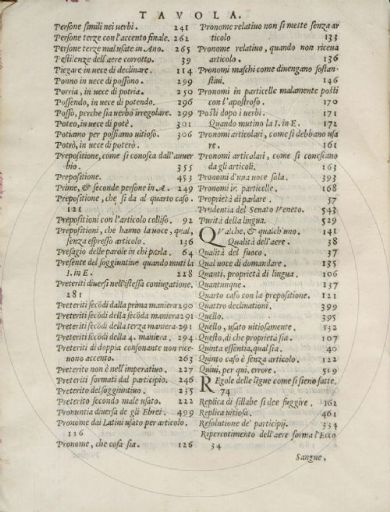 TAVOLA.
Persone simili nei uerbi. 241
Persone terze con l'accento finale. 262
Persone terze mal usate in Ano. 265
Pestilenze dell'aere corrotto. 39
Piegare in uece di declinare. 114
Ponno in uece di possono. 295
Porria, in uece di potria. 250
Possendo, in uece di potendo. 296
Posso, perche sia uerbo irregolare. 299
Poteo, in uece di potè. 301
Potiamo per possiamo uitioso. 306
Potrò, in uece di poterò. 261
Prepositione, come si conosca dall'auuer
bio. 355
Prepositione. 453
Prime, & seconde persone in A. 249
Prepositione, che si dà al quarto caso.
121
Prepositioni con l'articolo celisso. 92
Prepositioni, che hanno la noce, qual,
senza espresso articolo. 136
Presagio delle parole in chi parla. 64
Presente del soggiuntiuo quando muti la
I. in E. 228
Preteriti diuersi nell'istessa coniugatione.
281
Preteriti secōdi dalla prima maniera 290
Preteriti secōdi della secōda maniera 291
Preteriti secōdi della terza maniera 291
Preteriti secōdi della 4. maniera, 294
Preteriti di doppia consonante non rice-
uono accento. 263
Preterito non è nell'imperatiuo. 227
Preteriti formati dal participio. 246
Preterito del soggiuntiuo. 235
Preterito secondo male usato. 222
Pronuntia diuersa de gli Ebrei. 499
Pronome da i Latini usato per articolo.
126
Pronome, che cosa sia. 126
Pronome relatiuo non si mette senza ar
ticolo 133
Pronome relatiuo, quando non riceua
articolo. 136
Pronomi maschi come diuengano sostan-
tiui. 146
Pronomi in particelle malamente posti
con l'apostrofo. 170
Posti dopo i uerbi. 171
Quando mutino la I. in E. 172
Pronomi articolari, come si debbano usa
re. 161
Pronomi articolari, come si conoscano
da gli articoli. 163
Pronomi d'una noce sola. 393
Pronomi in particelle. 168
Proprietà di parlare. 57
Prudentia del Senato Veneto. 543
Purità della lingua. 529
Qualche, & qualch'uno. 141
Qualità dell'aere. 38
Qualità del fuoco. 37
Qual uoce di domandare. 135
Quanti, proprietà di lingua. 106
Quantunque. 137
Quarto caso con la prepositione. 121
Quattro declinationi. 399
Quello. 395
Quello, usato uitiosamente. 132
Quello, di che proprietà sia. 107
Quinta essentia, qual sia. 40
Quinto caso è senza articolo. 122
Quiui, per qui, errore. 519
Regole delle ligue come si sieno fatte.
74
Replica di sillabe si dee fuggire. 162
Replica uitiosa. 461
Resolutione de' participij. 334
Repercotimento dell'aere forma l'Ecco
34
Sangue,